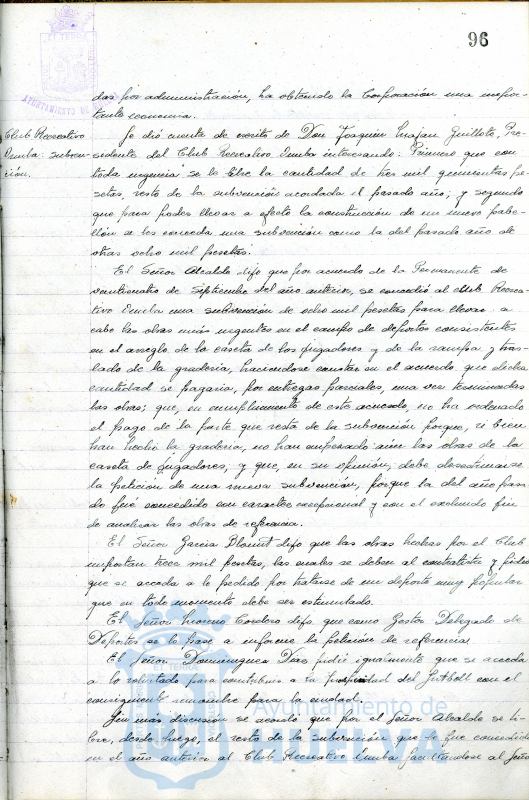 96
AYUNTAMIENTO DE
das por administración, ha obtenido la Corporación una impor-
tante economía.
Club Recreativo
Onuba: subven-
ción.
Se dió cuenta de escrito de Don Joaquin Guillote, Pre-
sidente del Club Recreativo Onuba interesando: Primero que con
toda urgencia se le libre la cantidad de tres mil quinientas pe-
setas, resto de la subvención acordada el pasado año; y segundo
que para poder llevar a efecto la construcción de un nuevo pabe-
llón se les conceda una subvención como la del pasado año de
otras ocho mil pesetas.
El Señor Alcalde dijo que por acuerdo de la Permanente de
veinticuatro de Septiembre del año anterior, se concedió al Club Recrea-
tivo Onuba una subvención de ocho mil pesetas para llevar a
cabo las obras más urgentes en el campo de deportes consistentes
en el arreglo de la caseta de los jugadores y de la rampa y tras-
lado de la gradería, haciendose constar en el acuerdo que dicha
cantidad se pagaria, por entregas parciales, una vez terminadas
las obras; que, en cumplimiento de este acuerdo, no ha ordenado
el pago de la parte que resta de la subvención porque, si bien
han hecho la gradería, no han empezado aún las obras de la
caseta de jugadores, y que, en su opinión, debe desestimarse
la petición de una nueva subvención, porque la del año pasa-
do fué concedido con caracter excepcional y con el exclusivo fin
de realizar las obras de referencia.
El Señor García Blount dijo que las obras hechas por el Club
importan trece mil pesetas, las cuales se deben al contratista y pidió
que se acceda a lo pedido por tratarse de un deporte muy popular
que en todo momento debe ser estimulado.
El Señor Moreno Cordero dijo que como Gestor Delegado de
Deportes se le pase a informe la petición de referencia.
El Señor Dominguez Diaz pidió igualmente que se acceda
a lo solicitado para contribuir a la del Futboll con el
consiguiente para la
Sin mas discusion se acordó que por el Señor Alcalde se li-
bre, desde luego, el resto de la subvención que le fue concedida
en el año anterior al Club Recreativo Onuba facultandose al Señor
Ayuntamiento de
HUELVA